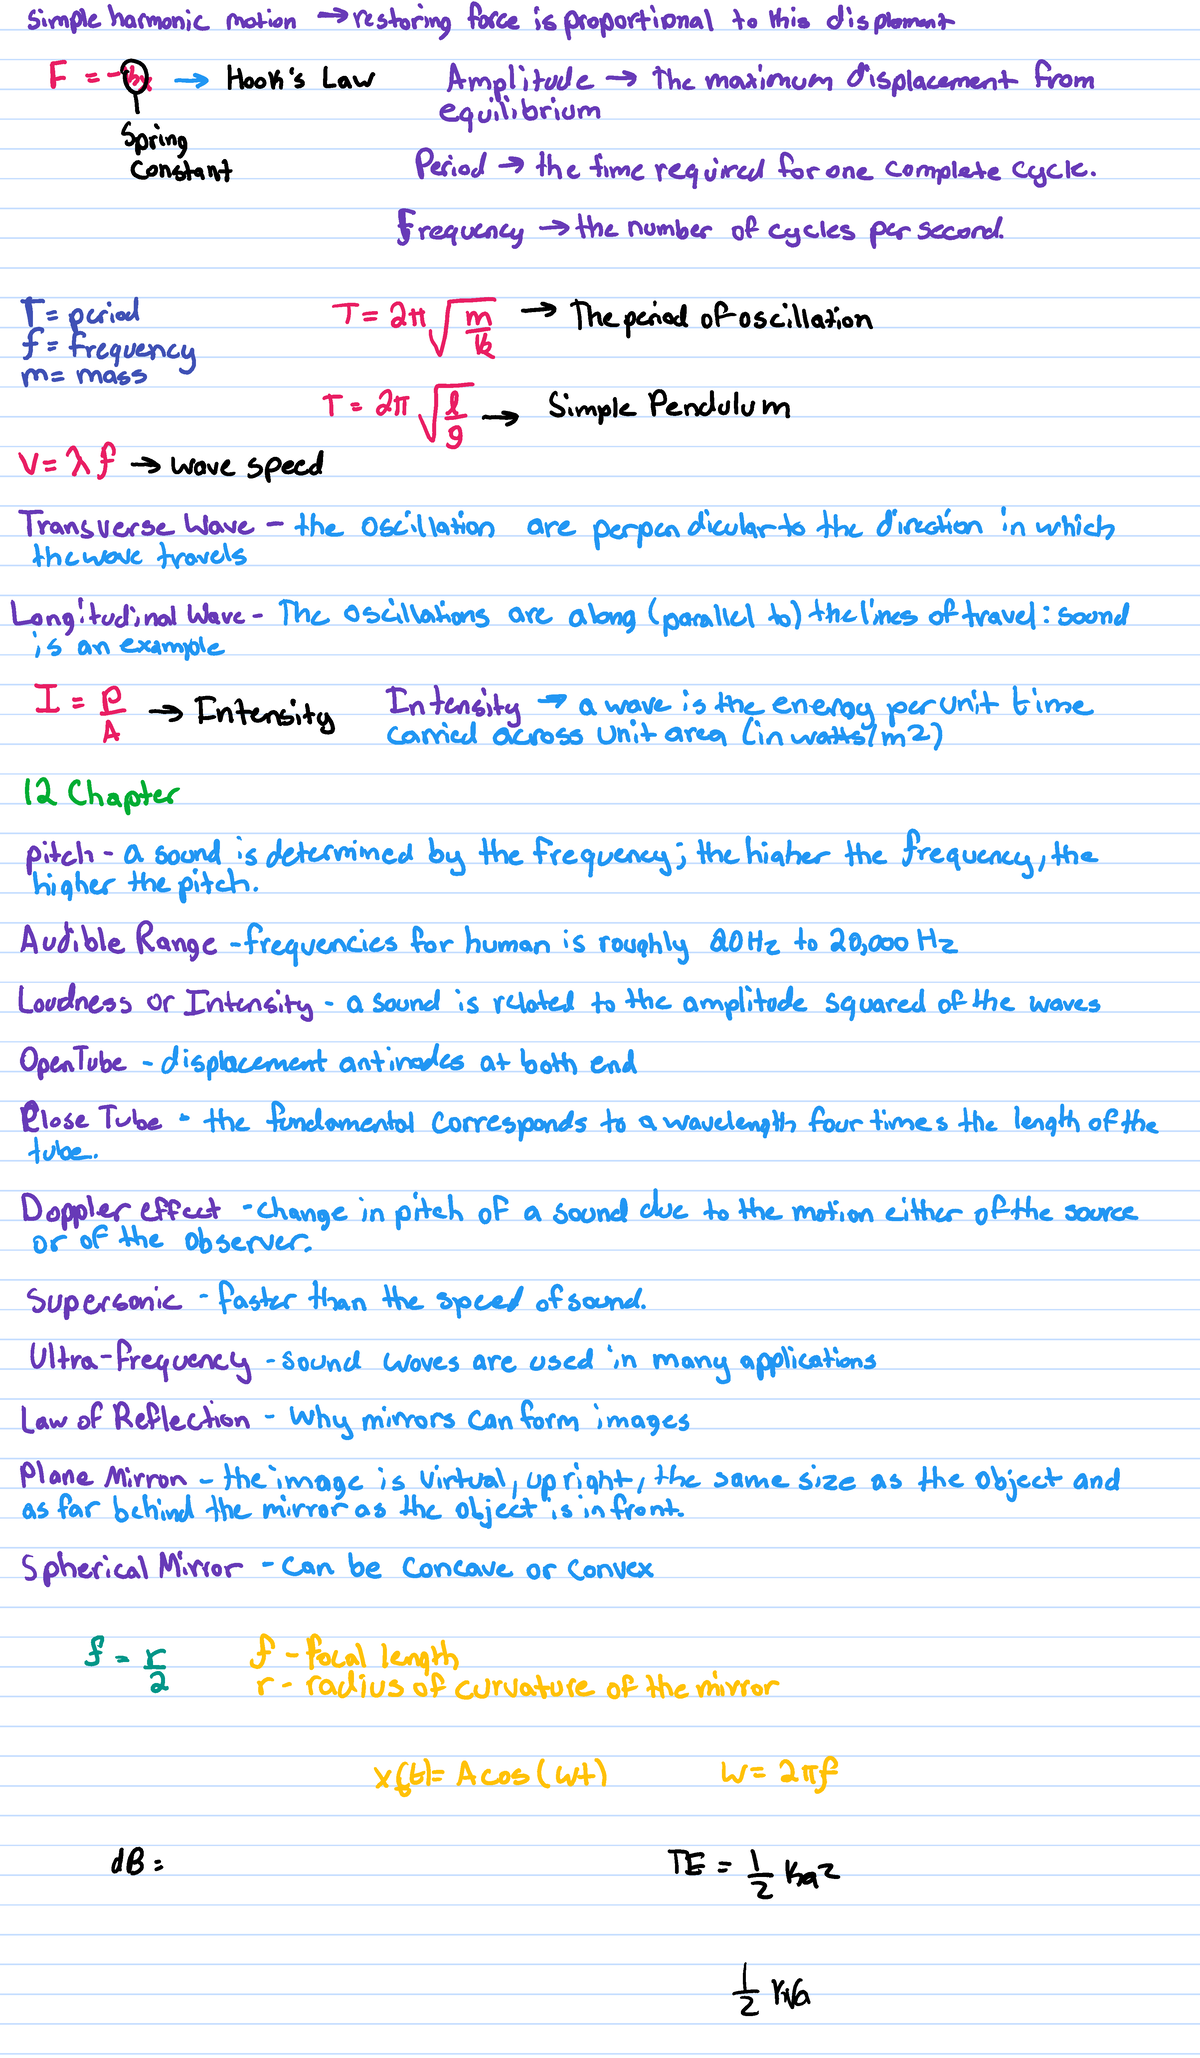 Simple harmonic motion → restoring force is proportional to this
F = - → Hook's Law
Amplitude → The maximum displacement from
equilibrium
Spring
Constant
Period → the time required for one complete cycle.
Frequency → the number of cycles per second.
T = period
f = frequency
m = mass
T = 2π √m/k → The period of oscillation
T = 2π √l/g → Simple Pendulum
V = λ f → wave speed
Transverse Wave - the oscillation are perpendicular to the direction in which
the wave travels
Longitudinal Wave - The oscillations are along (parallel to) the lines of travel: sound
is an example
I = P/A → Intensity
Intensity → a wave is the energy per unit time
carried across unit area (in watts/m2)
12 Chapter
pitch - a sound is determined by the frequency; the higher the frequency, the
higher the pitch.
Audible Range - frequencies for human is roughly 20Hz to 20,000 Hz
Loudness or Intensity - a sound is related to the amplitude squared of the waves
Open Tube - displacement antinodes at both end
Close Tube - the fundamental corresponds to a wavelength four times the length of the
tube.
Doppler effect - change in pitch of a sound due to the motion either of the source
or of the observer.
Supersonic - faster than the speed of sound.
Ultra-frequency - sound waves are used in many applications
Law of Reflection - Why mirrors can form images
Plane Mirron - the image is virtual, upright, the same size as the object and
as far behind the mirror as the object is in front.
Spherical Mirror - can be concave or convex
f = r/2
f - focal length
r - radius of curvature of the mirror
x(t) = A cos (wt)
w = 2πf
dB =
TE = 1/2 ka2
1/2